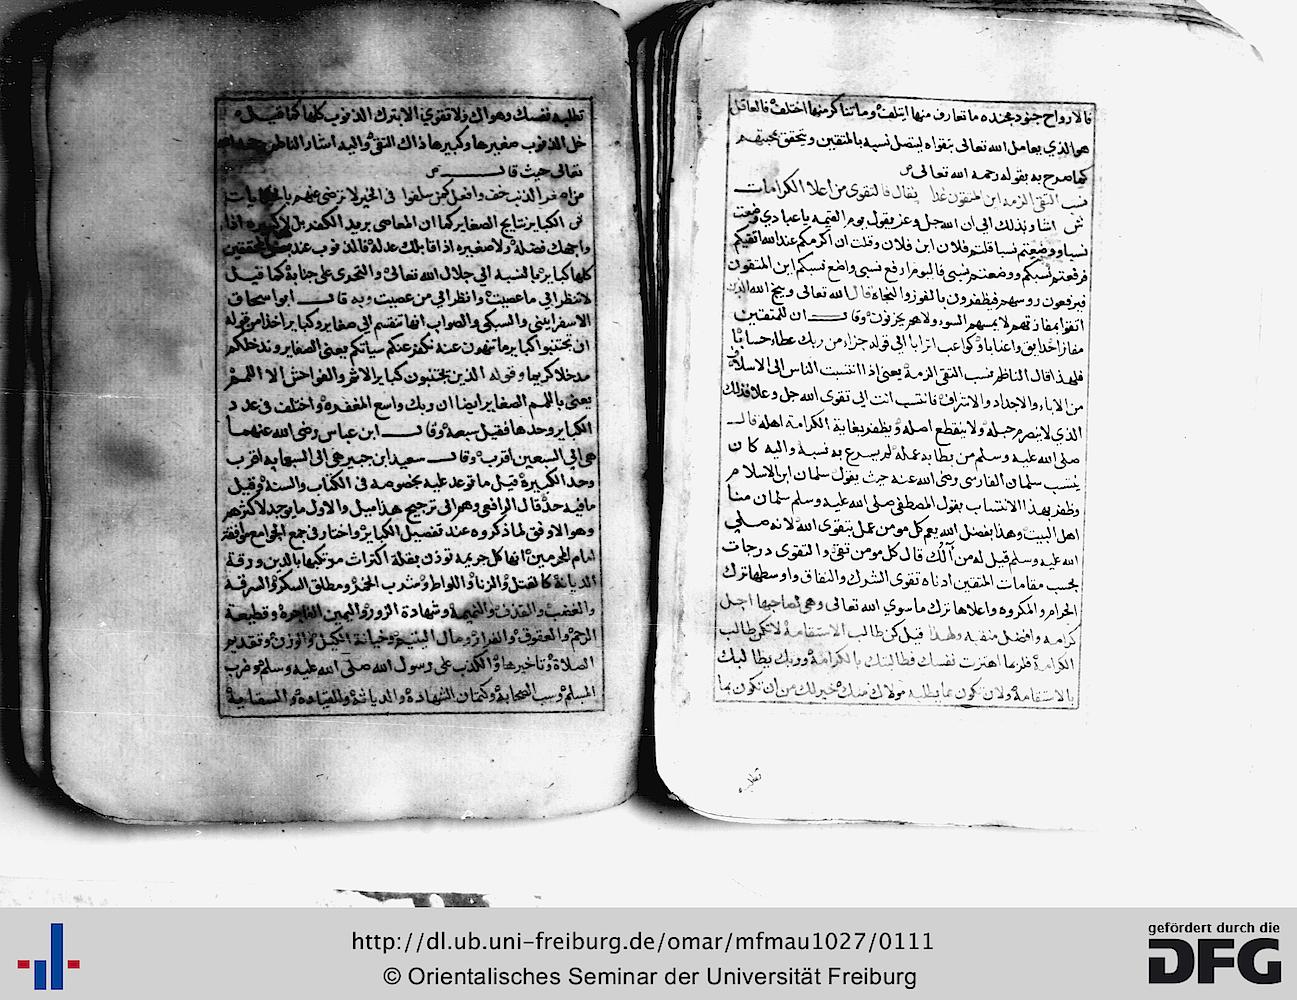 فالارواح جنود مجنده ما تعارف منها ايتلف وما تناكر منها اختلف فالعاقل
هو الذي يعامل الله تعالى بتقواه ليتصل نسبه بالمتقين ويتحقق
كما صرح به بقوله رحمه الله تعالى
نسب التقى الزمه ابن المتقون غدا يقال فالتقوى من اعلا الكرامات
ش اشار بذلك الى ان الله جل وعز يقول يوم القيمه يا عبادي وضعت
نسبا ووضعتم نسبا قلتم فلان ابن فلان وقلت ان اكرمكم عند الله اتقيكم
فرفعتم نسبكم ووضعتم نسبى فاليوم ارفع نسبى واضع نسبكم اين المتقون
فيرفعون روسهم فيظفرون بالفوز والنجاة قال الله تعالى وينجي الله الذين
اتقوا بمفازتهم لا يمسهم السوء ولا هم يحزنون وقال ان للمتقين
مفازا حدايق واعنابا وكواعب اترابا الى قوله جزاء من ربك عطاء حسابا
فلهذا قال الناظم نسب التقى الزمه يعنى اذا انتسبت الناس الى الاسلاف
من الاباء والاجداد والاشراف فانتسب انت الى تقوى الله جل وعلا فذلك
الذي لا ينصرم حبله ولا ينقطع اصله ويظفر بغاية الكرامة اهله قال
صلى الله عليه وسلم من بطا به عمله لم يسرع به نسبه واليه كان
ينتسب سلمان الفارسى رضى الله عنه حيث يقول سلمان ابن الاسلام
وظفر بهذا الانتساب بقول المصطفى صلى الله عليه وسلم سلمان منا
اهل البيت وهذا بفضل الله يعم كل مومن عمل بتقوى الله لانه صلى
الله عليه وسلم قيل له من آلك قال كل مومن تقى والتقوى درجات
بحسب مقامات المتقين ادناه تقوى الشرك والنفاق واوسطها ترك
الحرام والمكروه واعلاها ترك ما سوي الله تعالى وهى لصاحبها اجل
كرامه وافضل منقبه ولهذا قيل كن طالب الاستقامة لا تكن طالب
الكرامة فلربما اهتزت نفسك فطالبتك بالكرامة وربك يطالبك
بالاستقامة ولان تكون بما يطلبه مولاك منك خير لك من ان تكون بما
تطلبه
تطلبه نفسك وهواك ولا تقوي الا بترك الذنوب كلها كما قيل
خل الذنوب صغيرها وكبيرها ذاك التقى واليه اشار الناظم
تعالى حيث قال
من اصغر الذنب خف وافعل كمن سلفوا في الخير لا ترضى عنهم
ش الكبايز نتايج الصغاير كما ان المعاصى بريد الكفر بل لا كبيره اذا
واجهك فضله ولا صغيره اذا قابلك عدله فالذنوب عند المحققين
كلها كباير بالنسبه الى جلال الله تعالى والتجرى على جنابه كما قيل
لا تنظر الى ما عصيت وانظر الى من عصيت وبه قال ابو اسحاق
الاسفراينى والسبكى والصواب انها تنقسم الى صغاير وكباير اخذا من قوله
ان تجتنبوا كباير ما تنهون عنه نكفر عنكم سياتكم يعنى الصغاير وندخلكم
مدخلا كريما وقوله الذين يجتنبون كباير الاثم والفواحش الا اللمم
يعنى باللمم الصغاير ايضا ان ربك واسع المغفره واختلف في عدد
الكباير وحدها فقيل سبعة وقال ابن عباس رضى الله عنهما
هى الى السبعين اقرب وقال سعيد ابن جبير هى الى السبعمايه اقرب
وحد الكبيره قيل ما توعد عليه بخصوصه فى الكتاب والسنه وقيل
ما فيه حد قال الرافعى وهم الى ترجيح هذا اميل والاول ما يوجد لاكثرهم
وهو الاوفق لما ذكروه عند تفصيل الكباير واختار فى جمع الجوامع موافقة
امام الحرمين انها كل جريمه توذن بقلة اكتراث مرتكبها بالدين ورقة
الديانة كالقتل والزنا واللواط وشرب الخمر ومطلق السكر والسرقه
والغصب والقذف والنميمة وشهادة الزور واليمين الفاجرة وقطيعة
الرحم والعقوق والفرار ومال اليتيم وخيانة الكيل والوزن وتقديم
الصلاة وتاخيرها والكذب على رسول الله صلى الله عليه وسلم وضرب
المسلم وسب الصحابة وكتمان الشهادة والدياثة والقيادة والسعاية
http://dl.ub.uni-freiburg.de/omar/mfmau1027/0111
© Orientalisches Seminar der Universität Freiburg
gefördert durch die
DFG